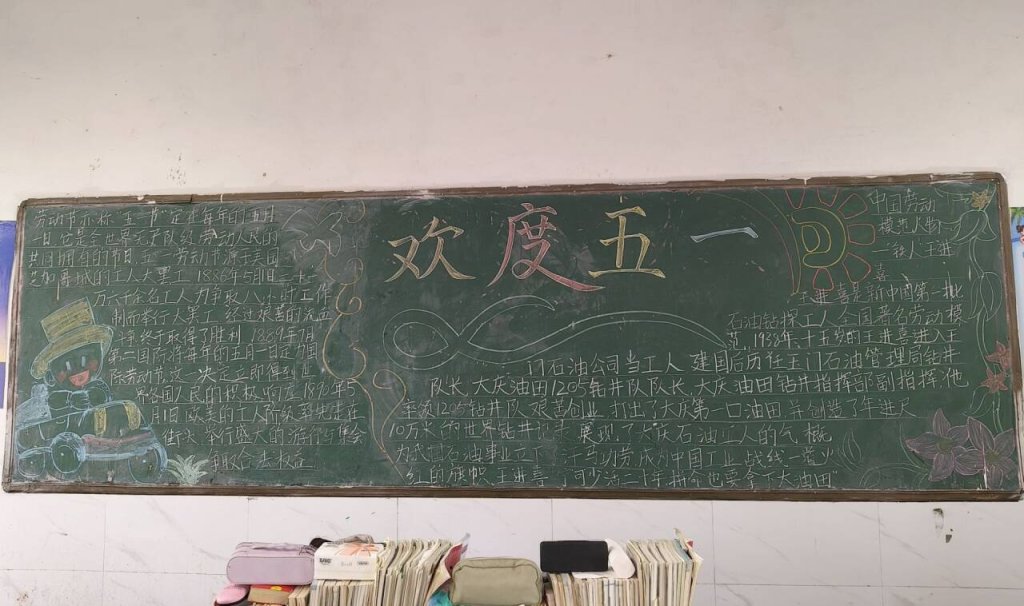 欢度五一
劳动节亦称"五一节"定在每年的五月
一日它是全世界无产阶级劳动人民的
共同拥有的节日五一劳动节源于美国
芝加哥城的工人大罢工1886年5月1日
万六千余名工人为争取八小时工作
制而举行大罢工 经过艰苦的流血
终于取得了胜利 1889年7月
第二国际将每年的五月一日定为国
际劳动节这一决定立即得到世
界各国人民的积极响应1890年5
月1日欧美的工人阶级率先走
街头举行盛大的游行与集会
争取合法权益
中国劳动
模范人物
一铁人王进
喜
王进喜是新中国第一批
石油钻探工人全国著名劳动模
范,1938年十五岁的王进喜进入玉
门石油公司当工人 建国后历任玉门石油管理局钻井
队长大庆油田1205钻井队队长大庆油田钻井指挥部副指挥他
率领1205钻井队艰苦创业 打出了大庆第一口油田并创造了年进尺
10万米的世界钻井 展现了大庆石油工人的气概
为我国石油事业立下 汗马功劳成为中国工业战线一
红的旗帜王进喜 宁可少活二十年拼命也要拿下大油田